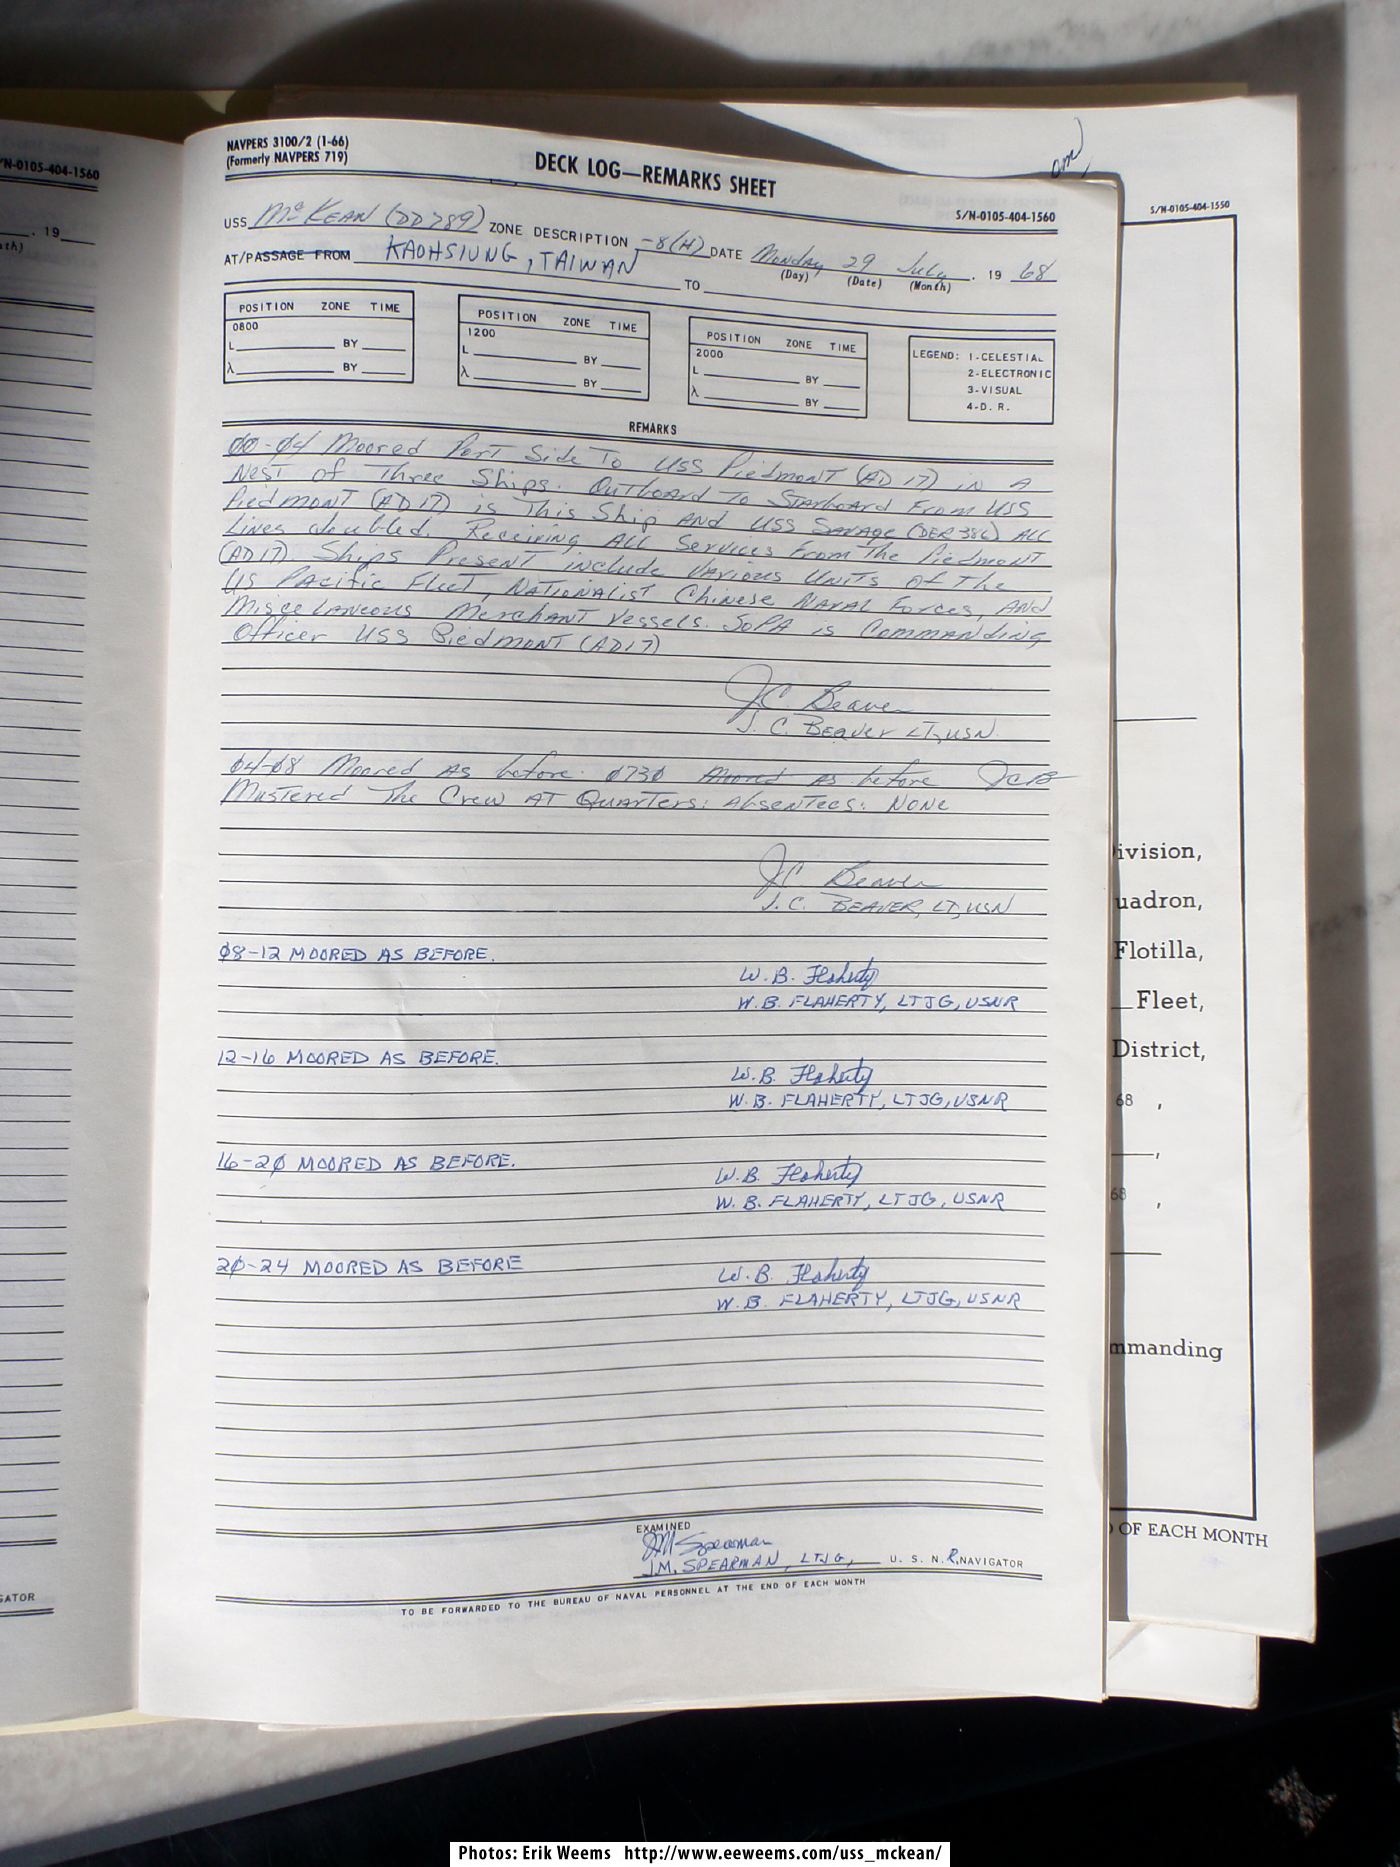 /N-0105-404-1560
. 19
nth)
GATOR
NAVPERS 3100/2 (1-66)
(Formerly NAVPERS 719)
DECK LOG—REMARKS SHEET
S/N-0105-404-1560
USS McKEAN (DD789) ZONE DESCRIPTION -8(H) DATE Monday 29 July, 19 68
(Day) (Date) (Month)
AT/PASSAGE FROM KAOHSIUNG, TAIWAN TO
POSITION ZONE TIME
0800
L BY
λ BY
POSITION ZONE TIME
1200
L BY
λ BY
POSITION ZONE TIME
2000
L BY
λ BY
LEGEND: 1-CELESTIAL
2-ELECTRONIC
3-VISUAL
4-D. R.
REMARKS
00-04 Moored Port Side To USS Piedmont (AD 17) in A
Nest of Three Ships. Outboard To Starboard From USS
Piedmont (AD 17) is This Ship AND USS SAVAGE (DER 386) ALL
Lines doubled. Receiving ALL Services From The Piedmont
(AD17) Ships Present include VArious UNiTS Of The
US Pacific Fleet, NATiONAList Chinese NAVAL Forces, AND
MiscelLANeous Merchant Vessels. SOPA is COMMANDing
Officer USS Piedmont (AD17)
J.C. Beaver
J. C. BEAVER LT, USN.
04-08 Moored As before. 0730 Moored As before JCB
Mustered The Crew AT QuArTers: AbsenTees: NONe
J.C. Beaver
J. C. BEAVER, LT, USN
08-12 MOORED AS BEFORE.
W. B. Flaherty
W. B. FLAHERTY, LTJG, USNR
12-16 MOORED AS BEFORE.
W. B. Flaherty
W. B. FLAHERTY, LTJG, USNR
16-20 MOORED AS BEFORE.
W. B. Flaherty
W. B. FLAHERTY, LTJG, USNR
20-24 MOORED AS BEFORE
W. B. Flaherty
W. B. FLAHERTY, LTJG, USNR
EXAMINED
JM Spearman
J.M. SPEARMAN, LTJG, U. S. N. R, NAVIGATOR
TO BE FORWARDED TO THE BUREAU OF NAVAL PERSONNEL AT THE END OF EACH MONTH
S/N-0105-404-1550
ivision,
uadron,
Flotilla,
Fleet,
District,
68 ,
,
68 ,
mmanding
OF EACH MONTH
Photos: Erik Weems http://www.eeweems.com/uss_mckean/